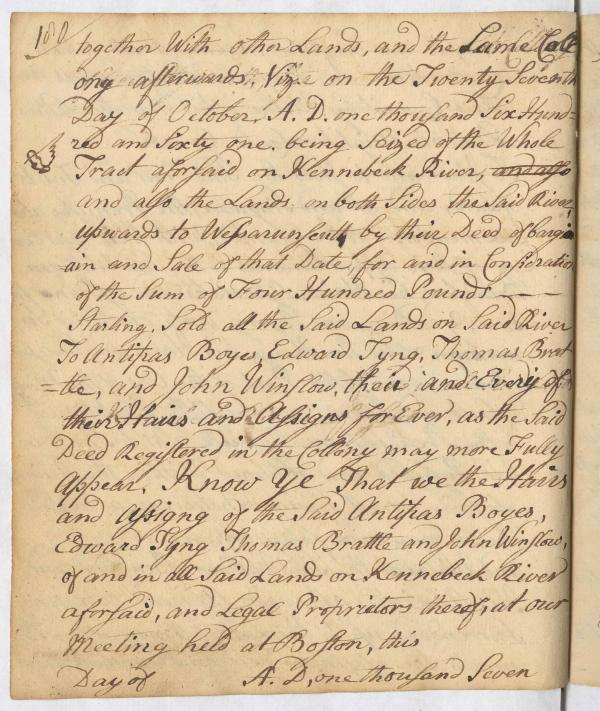 180
together With other Lands, and the Same Coll
ony afterwards, Viz on the Twenty Seventh
Day of October, A. D. one thousand Six Hund=
red and Sixty one. being Seized of the Whole
Tract aforsaid on Kennebeck River, and also
and also the Lands on both Sides the Said River
upwards to Wessarunscutt, by their Deed of barga
ain and Sale of that Date, for and in Consideration
of the Sum of Four Hundred Pounds
Starling, Sold all the Said Lands on Said River
To Antipas Boyes, Edward Tyng, Thomas Bratt
=tle, and John Winslow, their and Every of
their Hairs and Assigns for Ever, as the Said
Deed Registered in the Collony may more Fully
Appear, Know Ye That we the Hairs
and Assigng of the Said Antipas Boyes,
Edward Tyng Thomas Brattle and John Winslow,
of and in all Said Lands on Kennebeck River
aforsaid, and Legal Proprietors thereof, at our
Meeting held at Boston, this
Day of A. D, one thousand Seven